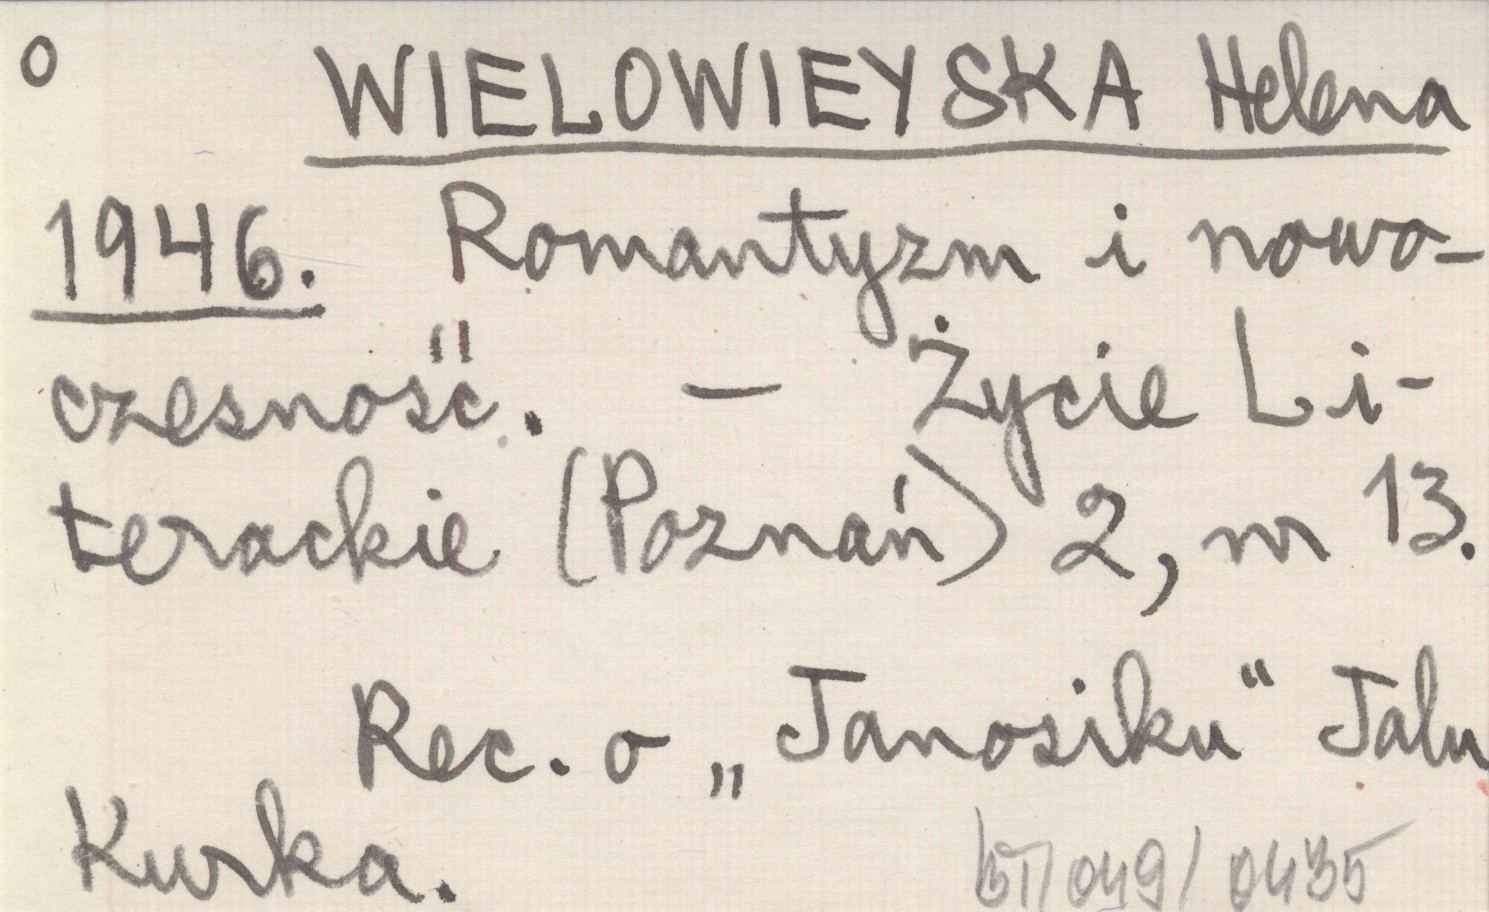 O WIELOWIEYSKA Helena
1946. Romantyzm i nowo-
czesność. — Życie Li-
terackie (Poznań) 2, nr 13.
Rec. o „Janosiku“ Jalu
Kurka.
049/0435